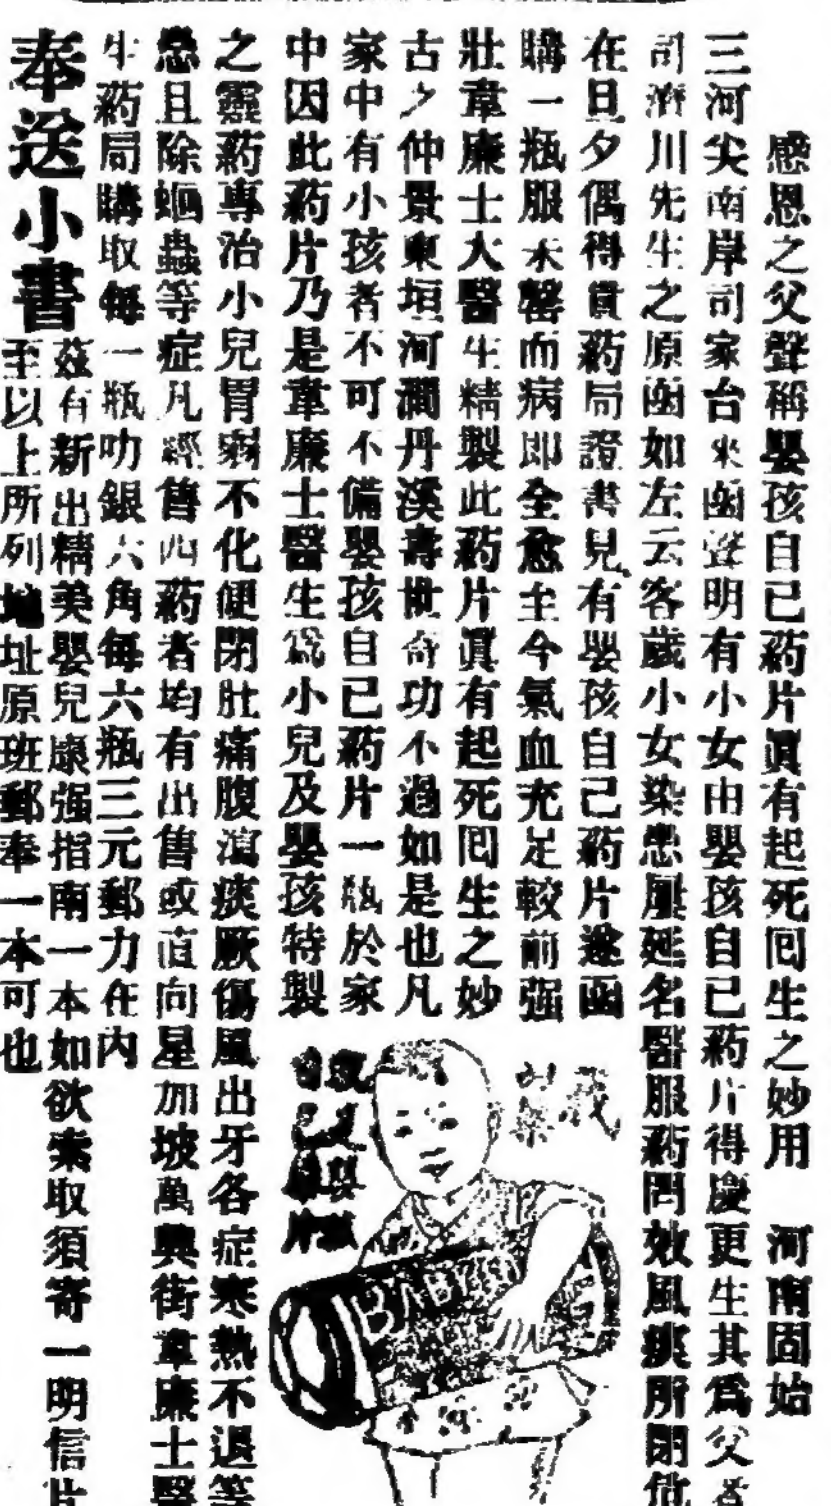 感恩之父聲稱嬰孩自己葯片眞有起死囘生之妙用 河南固始
三河尖南岸司家台來函聲明有小女由嬰孩自己葯片得慶更生其爲父者
司濟川先生之原函如左云客歲小女染患屢延名醫服葯罔效風痰所閉危
在旦夕偶得貴葯局證書見有嬰孩自己葯片遂函
購一瓶服未罄而病即全愈至今氣血充足較前强
壯韋廉士大醫生精製此葯片眞有起死囘生之妙
古之仲景東垣河澗丹溪壽世奇功不過如是也凡
家中有小孩者不可不備嬰孩自己葯片一瓶於家
中因此葯片乃是韋廉士醫生爲小兒及嬰孩特製
之靈葯專治小兒胃弱不化便閉肚痛腹瀉痰厥傷風出牙各症寒熱不退等
患且除蛔蟲等症凡經售西葯者均有出售或直向星加坡萬興街韋廉士醫
生葯局購取每一瓶叻銀六角每六瓶三元郵力在內
奉送小書
茲有新出精美嬰兒康强指南一本如欲索取須寄一明信片
至以上所列地址原班郵奉一本可也
嬰孩
自己
葯片
BABY